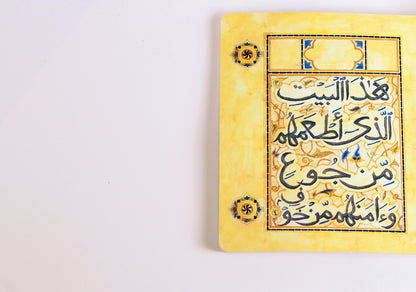 هَٰذَا ٱلْبَيْتِ
ٱلَّذِىٓ أَطْعَمَهُم
مِّن جُوعٍ
وَءَامَنَهُم مِّنْ خَوْفٍ